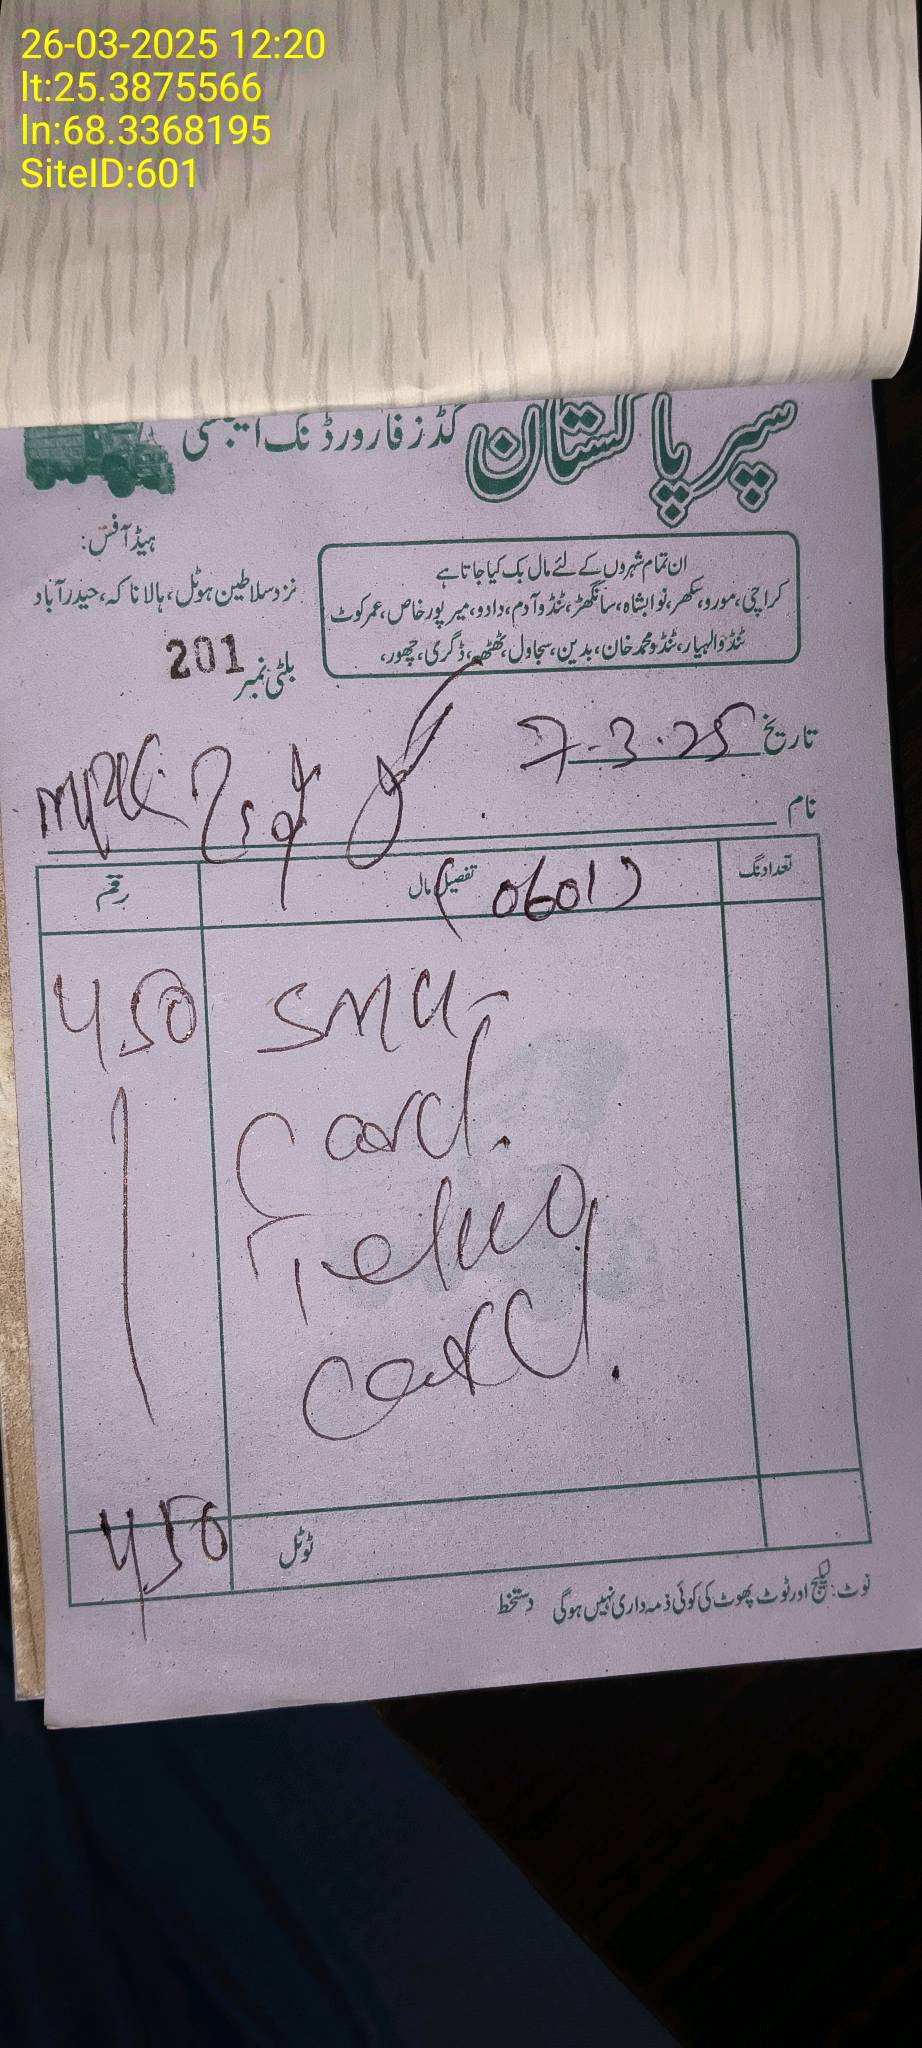 26-03-2025 12:20
lt:25.3875566
ln:68.3368195
SiteID:601
سپر پاکستان گڈز فارورڈنگ ایجنسی
ہیڈ آفس:
نزد سلاطین ہوٹل، ہالا ناکہ، حیدرآباد
ان تمام شہروں کے لئے مال بک کیا جاتا ہے
کراچی، مورو، سکھر، نوابشاہ، سانگھڑ، ٹنڈو آدم، دادو، میرپورخاص، عمرکوٹ
ٹنڈو الہیار، ٹنڈو محمد خان، بدین، سجاول، ٹھٹھہ، ڈگری، چھور،
بلٹی نمبر 201
تاریخ 7-3-25
نام
MPK
تعداد نگ تفصیل مال رقم
(0601)
450 SMU
Card.
card.
ٹوٹل 450
نوٹ: لیکیج اور ٹوٹ پھوٹ کی کوئی ذمہ داری نہیں ہوگی دستخط